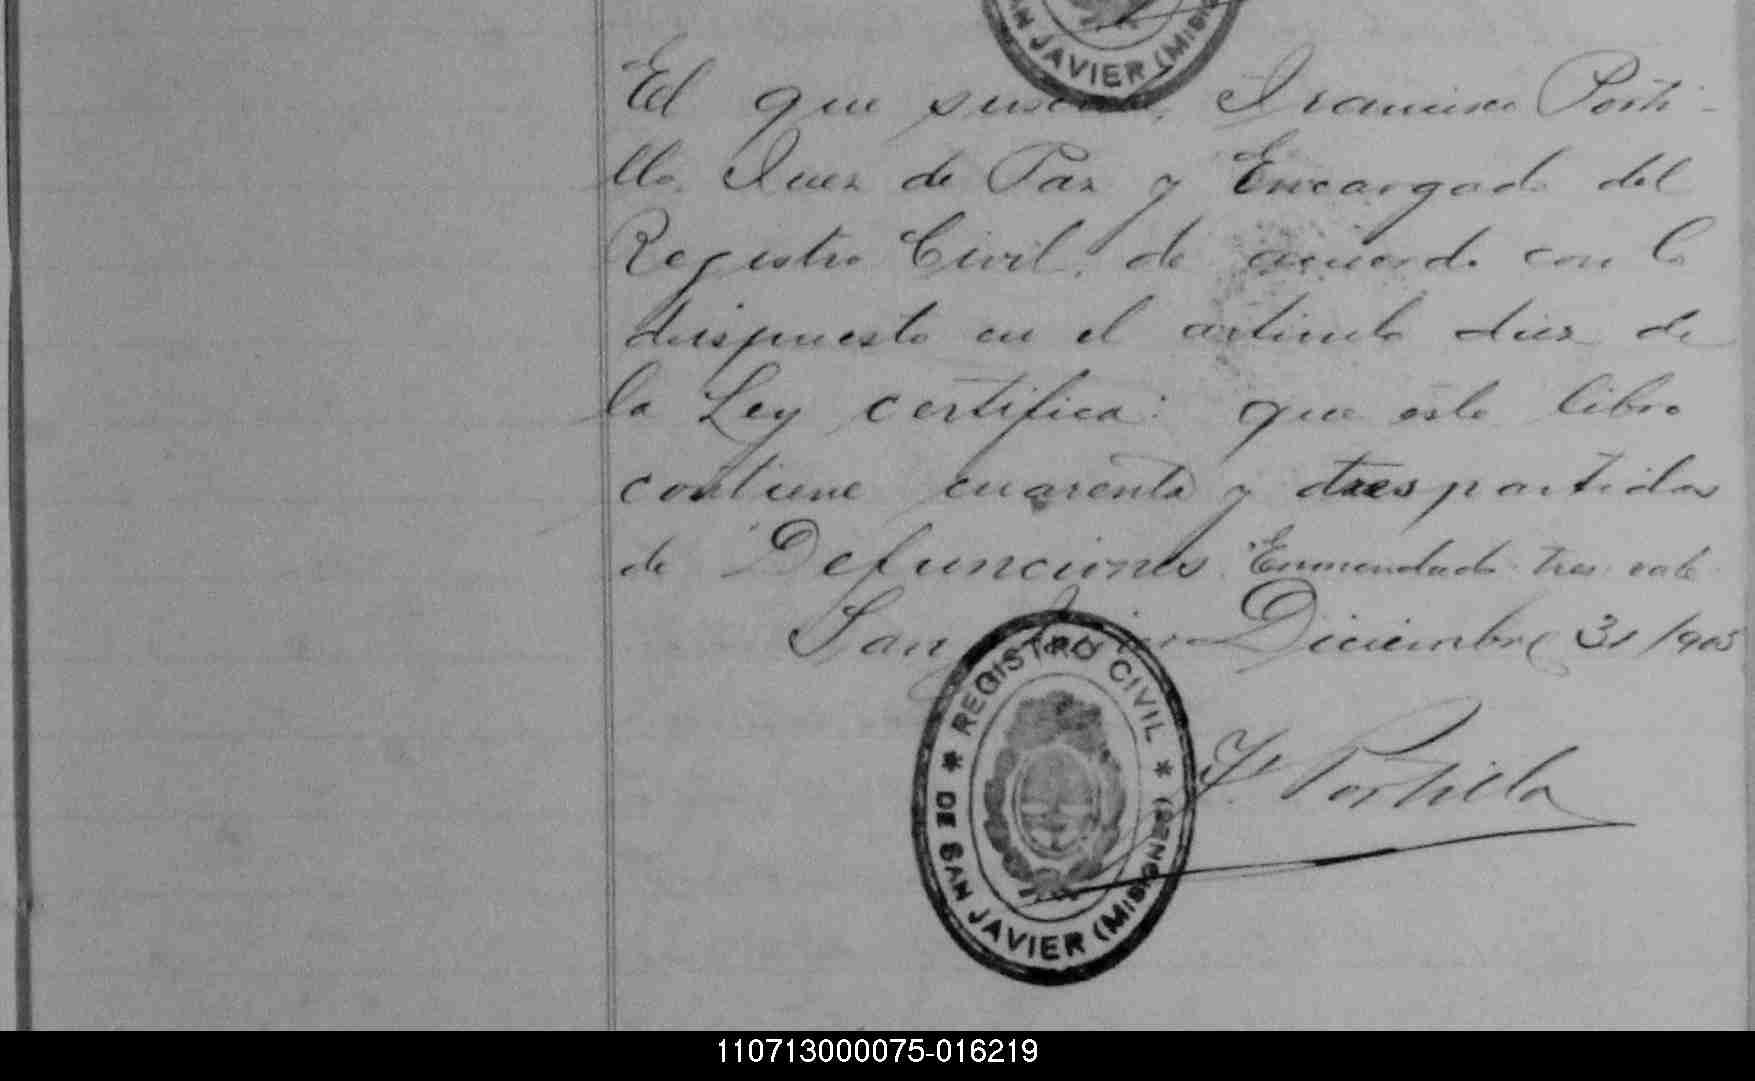 SAN JAVIER (MISIO
El que suscribe, Francisco Porti-
llo, Juez de Paz y Encargado del
Registro Civil, de acuerdo con lo
dispuesto en el articulo diez de
la Ley certifica: que este libro
contiene cuarenta y tres partidas
de Defunciones. Enmendado tres vale
San Javier Diciembre 31/905
REGISTRO CIVIL
DE SAN JAVIER (MISIONES)
F. Portillo
110713000075-016219